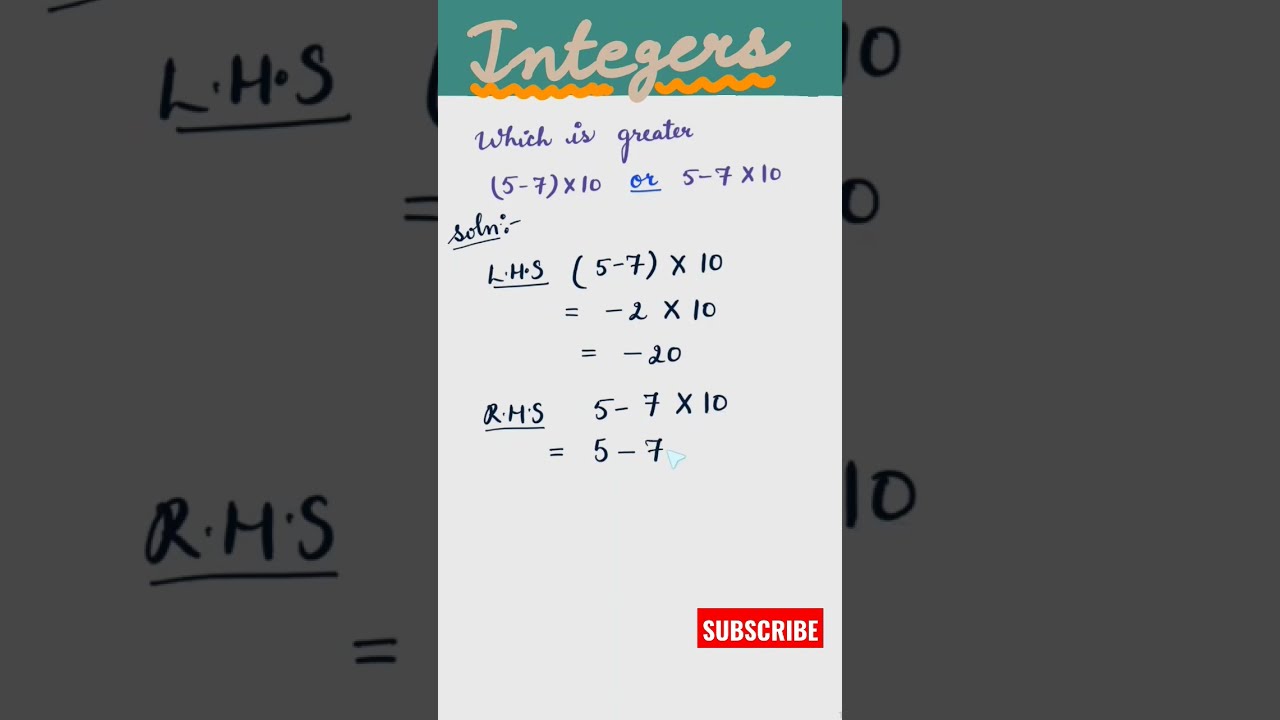 Integers
Which is greater
(5-7)×10 or 5-7×10
Soln:-
L.H.S (5-7) × 10
= -2 × 10
= -20
R.H.S 5- 7 ×10
= 5-7
SUBSCRIBE
L.H.S ( 10
= 0
R.H.S 10
=